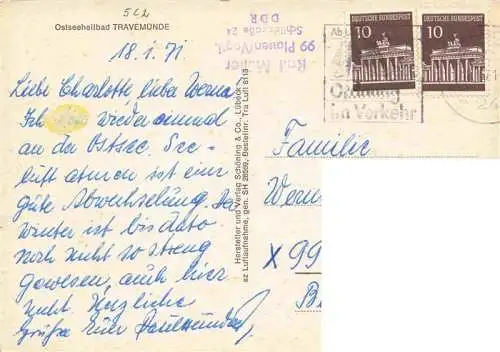 5L2
Ostseeheilbad TRAVEMÜNDE
18.1.71
Liebe Charlotte lieber Werner
Ich wieder einmal
an der Ostsee. See-
luft atmen ist eine
gute Abwechselung. Der
Winter ist bis dato
noch nicht so streng
gewesen, auch hier
nicht. Herzliche
Grüße Euer
Hersteller und Verlag Schöning & Co., Lübeck
sz Luftaufnahme, gen. SH 26509, Bestellnr. Tra Luft 8113
99 Plauen/Vogtl.
DDR
DEUTSCHE BUNDESPOST
10
DEUTSCHE BUNDESPOST
10
Ordnung
im Verkehr
Familie
Wern
X 99